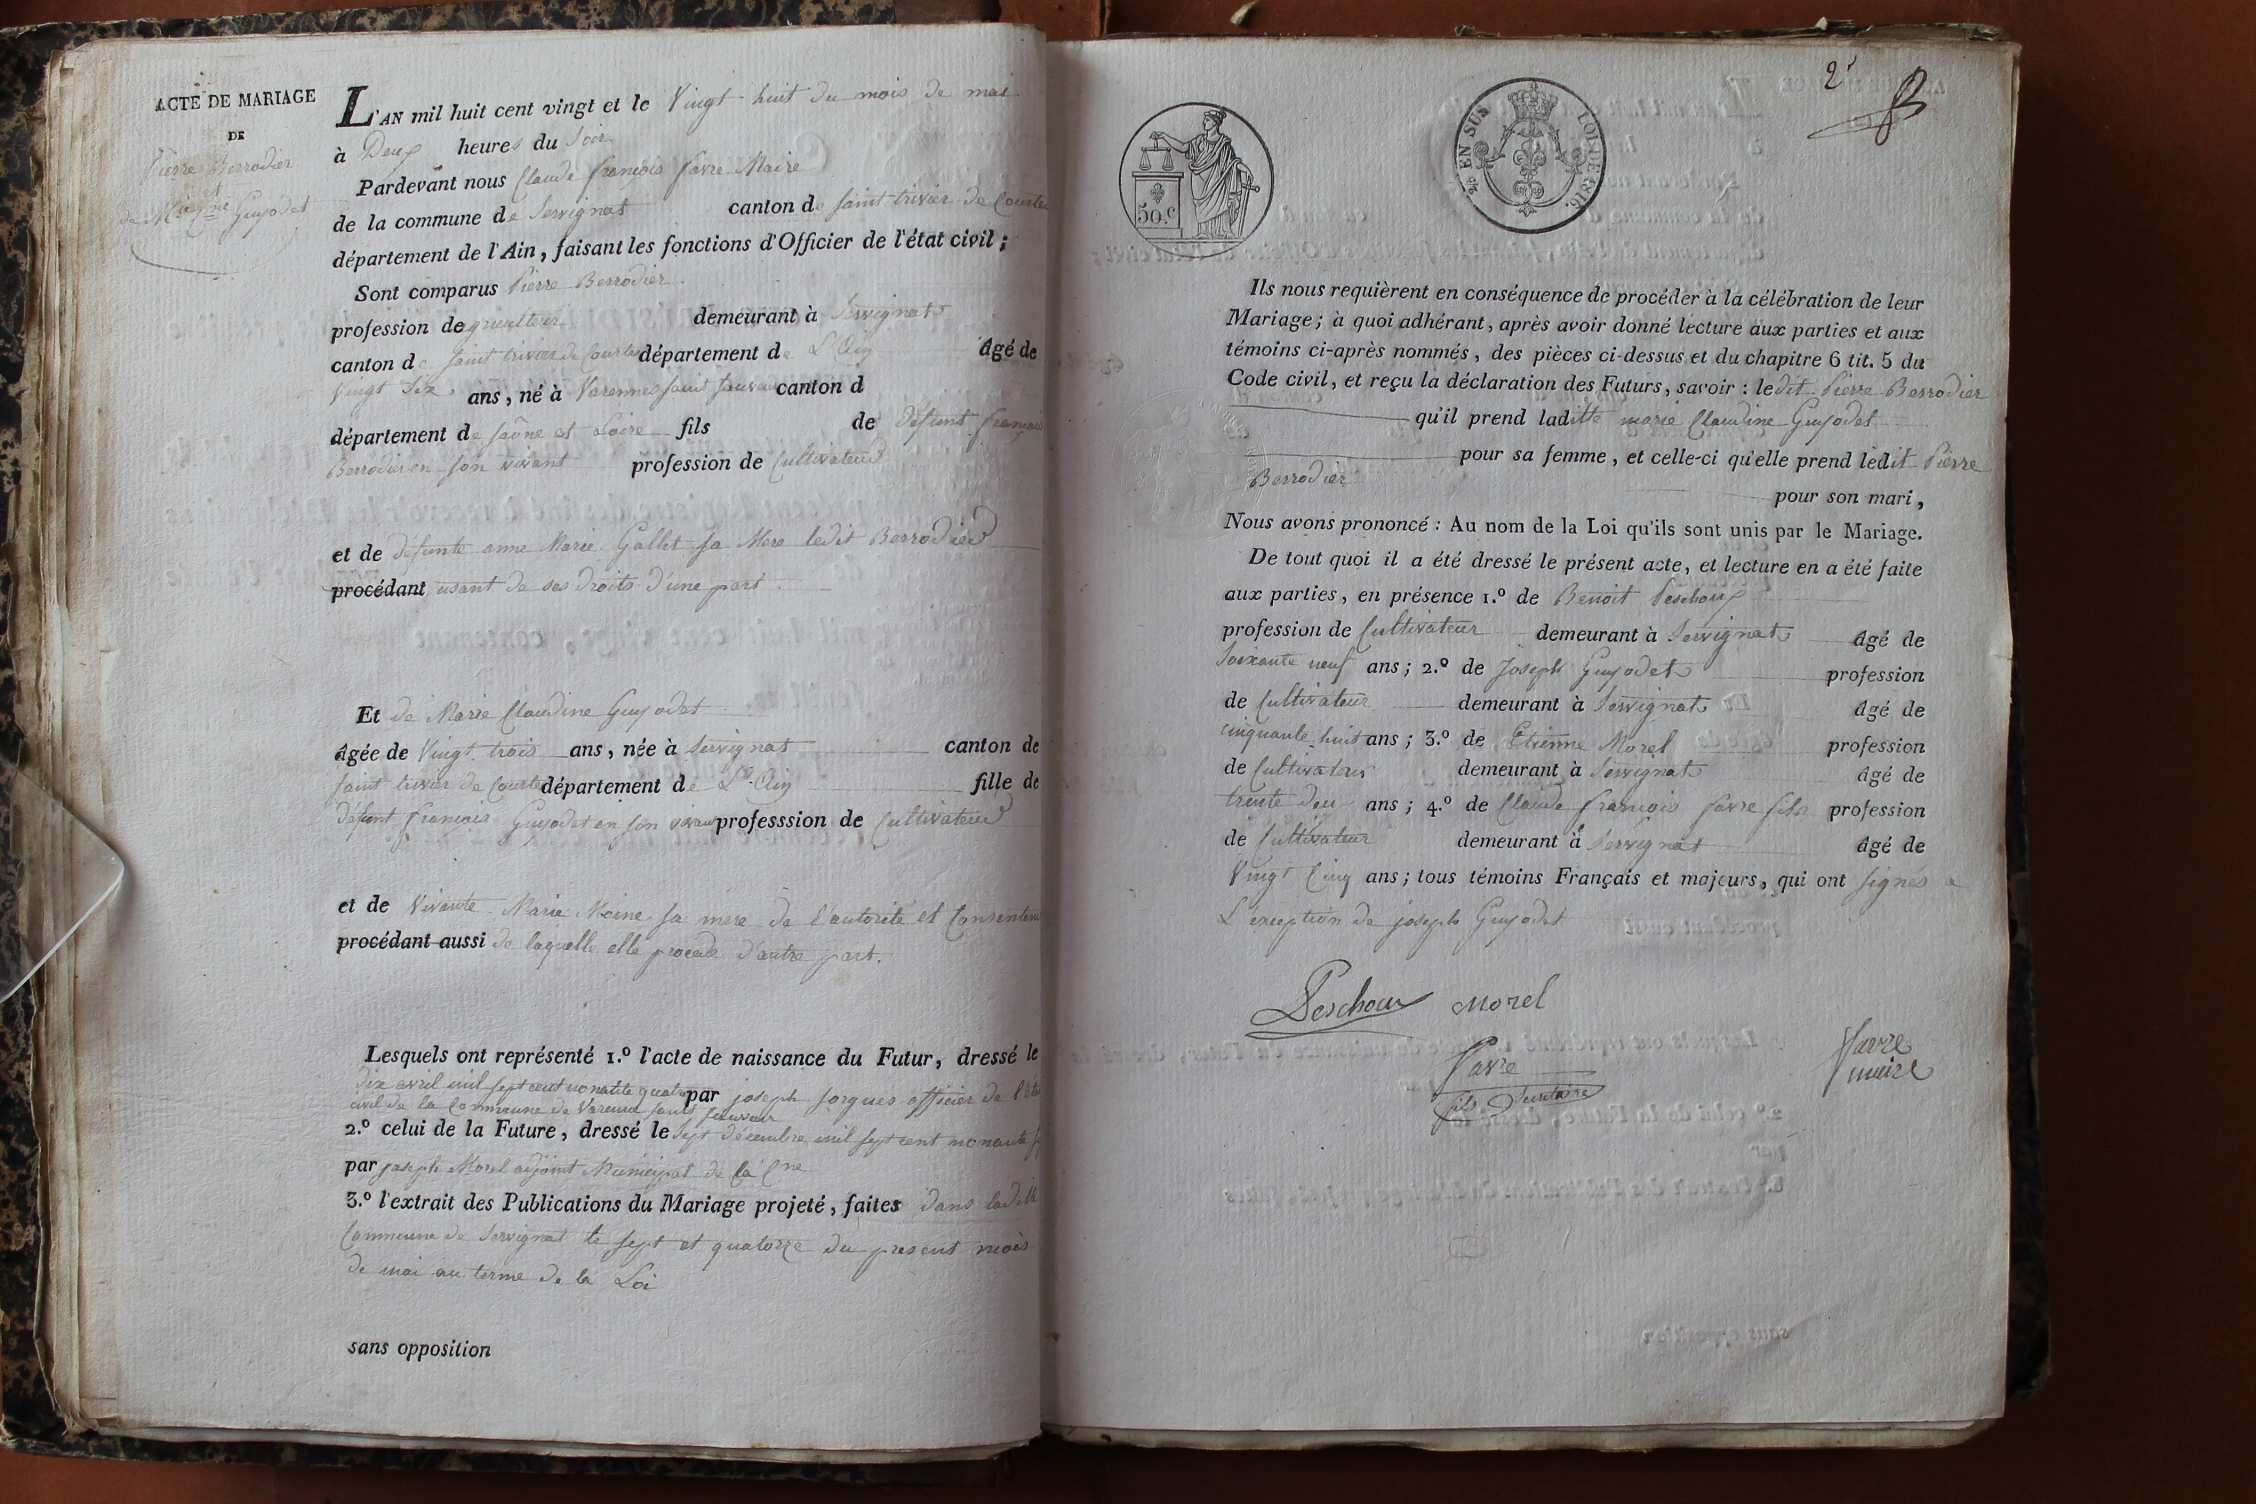 ACTE DE MARIAGE
DE
Pierre Berrodier
et
de M. Cne Guyodet
L'AN mil huit cent vingt et le Vingt huit du mois de mai
à Deux heures du Soir
Pardevant nous Claude françois favre Maire
de la commune de Servignat canton de saint trivier de Courtes
département de l'Ain, faisant les fonctions d'Officier de l'état civil;
Sont comparus Pierre Berrodier
profession de agriculteur demeurant à Servignat
canton de saint trivier de Courtes département de L'Ain âgé de
Vingt Six ans, né à Varennes saint sauveur canton d
département de saône et Loire fils de défunt françois
Berrodier en son vivant profession de Cultivateur
et de défunte anne Marie Gallet sa Mere ledit Berrodier
procédant usant de ses droits d'une part.
Et de Marie Claudine Guyodet
âgée de Vingt trois ans, née à Servignat canton de
saint trivier de Courtes département de L'Ain fille de
défunt françois Guyodet en son vivant professsion de Cultivateur
et de Vivante Marie Moine sa mere de l'autorité et Consentement
procédant aussi de laquelle elle procede d'autre part.
Lesquels ont représenté 1.º l'acte de naissance du Futur, dressé le
dix avril mil sept cent nonante quatre par joseph sorgues officier de l'état
civil de la Commune de Varenne saint sauveur
2.º celui de la Future, dressé le sept décembre mil sept cent nonante
par joseph Morel adjoint Municipal de la Cne
3.º l'extrait des Publications du Mariage projeté, faites dans ladite
Commune de Servignat le sept et quatorze du present mois
de mai au terme de la Loi
sans opposition
2e
50.c
EN SUS
LOI DE 1816.
Ils nous requièrent en conséquence de procéder à la célébration de leur
Mariage; à quoi adhérant, après avoir donné lecture aux parties et aux
témoins ci-après nommés, des pièces ci-dessus et du chapitre 6 tit. 5 du
Code civil, et reçu la déclaration des Futurs, savoir: ledit Pierre Berrodier
qu'il prend laditte marie Claudine Guyodet
pour sa femme, et celle-ci qu'elle prend ledit Pierre
Berrodier
pour son mari,
Nous avons prononcé: Au nom de la Loi qu'ils sont unis par le Mariage.
De tout quoi il a été dressé le présent acte, et lecture en a été faite
aux parties, en présence 1.º de Benoit Peschoux
profession de Cultivateur demeurant à Servignat âgé de
soixante neuf ans; 2.º de Joseph Guyodet profession
de Cultivateur demeurant à Servignat âgé de
cinquante huit ans; 3.º de Etienne Morel profession
de Cultivateur demeurant à Servignat âgé de
trente deux ans; 4.º de Claude françois favre fils profession
de Cultivateur demeurant à Servignat âgé de
Vingt Cinq ans; tous témoins Français et majeurs, qui ont signés a
L'exception de joseph Guyodet
Peschoux Morel
favre
fils Secretaire
favre
maire